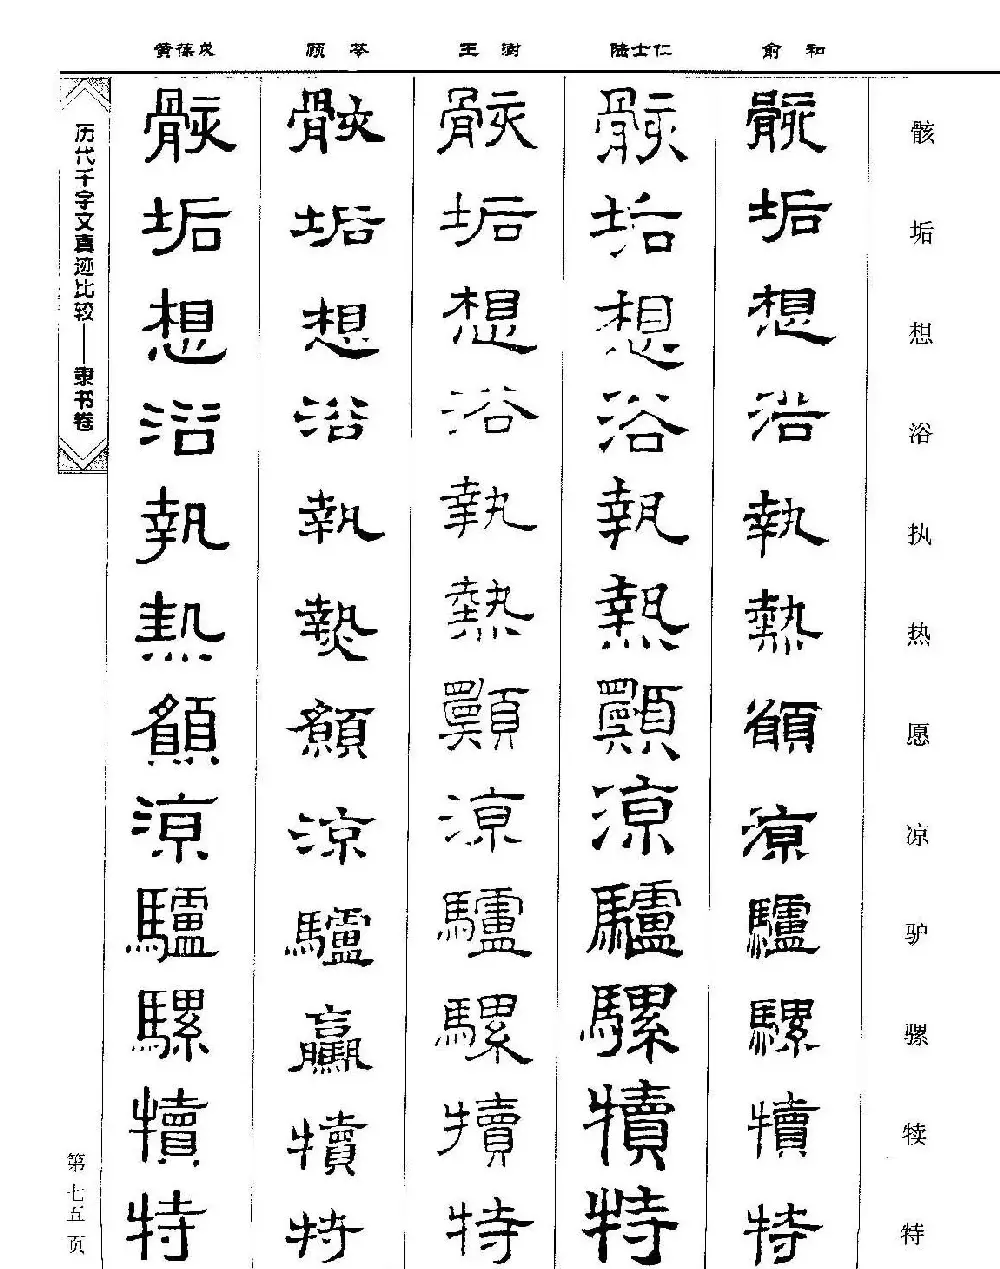 黄葆戉 顾苓 王澍 陆士仁 俞和
历代千字文真迹比较——隶书卷
骸 骸 骸 骸 骸 骸
垢 垢 垢 垢 垢 垢
想 想 想 想 想 想
浴 浴 浴 浴 浴 浴
執 執 執 執 執 执
熱 熱 熱 熱 熱 热
願 願 顚 顚 願 愿
涼 涼 凉 涼 涼 凉
驢 驢 驢 驢 驢 驴
騾 驘 騾 騾 騾 骡
犢 犢 犢 犢 犢 犊
特 特 特 特 特 特
第七五页